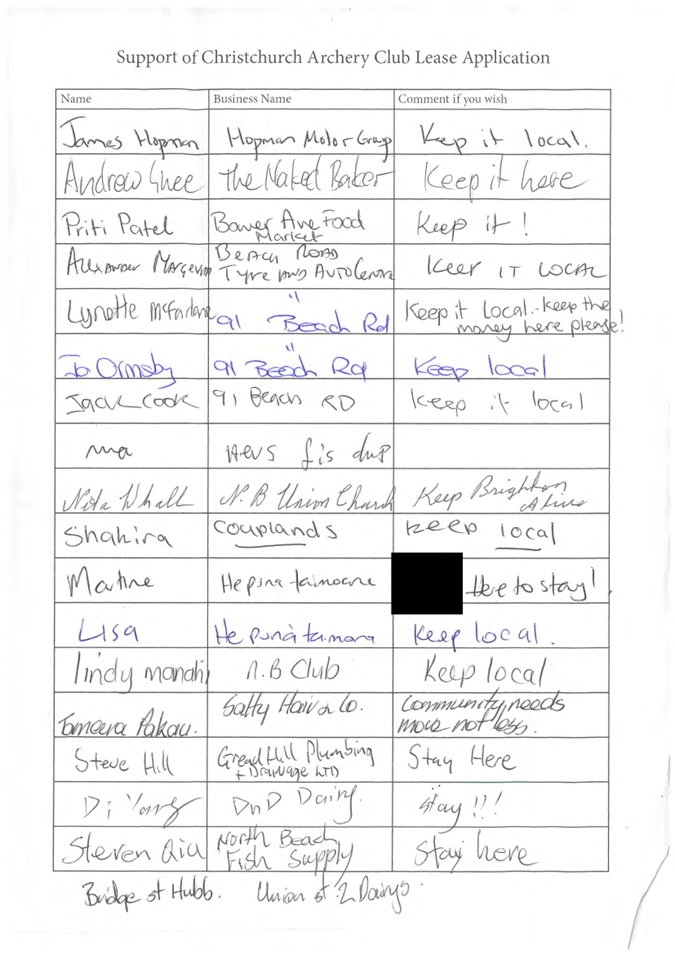 Support of Christchurch Archery Club Lease Application
Name Business Name Comment if you wish
James Hopman Hopman Motor Group Keep it local.
Andrew Ghee The Naked Baker Keep it here
Priti Patel Bower Ave Food Market Keep it!
Alexander Beach Road Tyre and AutoCentre Keep it local
Lynette McFarlane 91 Beach Rd Keep it Local.-Keep the money here please!
Jo Ormsby 91 " Beach Rd Keep local
Jack Cook 91 Beach RD Keep it local
Nita Whall N.B Union Church Keep Brighton Alive
Shakira Couplands Keep local
Martine He puna taimoana Here to stay!
Lisa He puna taimoana Keep local.
lindy N.B Club Keep local
Tameera Pakau. Salty Hair & Co. Community needs more not less.
Steve Hill Plumbing + Drainage LTD Stay Here
Di Young DnD Dairy. Stay!!!
Steven Qiu North Beach Fish Supply Stay here
Bridge st Hubb. Union st 2 Dairys.